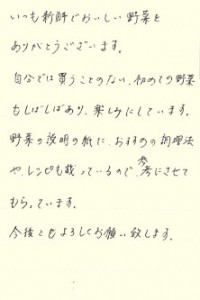 いつも新鮮でおいしい野菜を
ありがとうございます。
自分では買うことのない、初めての野菜
もしばしばあり、楽しみにしています。
野菜の説明の紙に、おすすめの調理法
や、レシピも載っているので、参考にさせて
もらっています。
今後ともよろしくお願い致します。